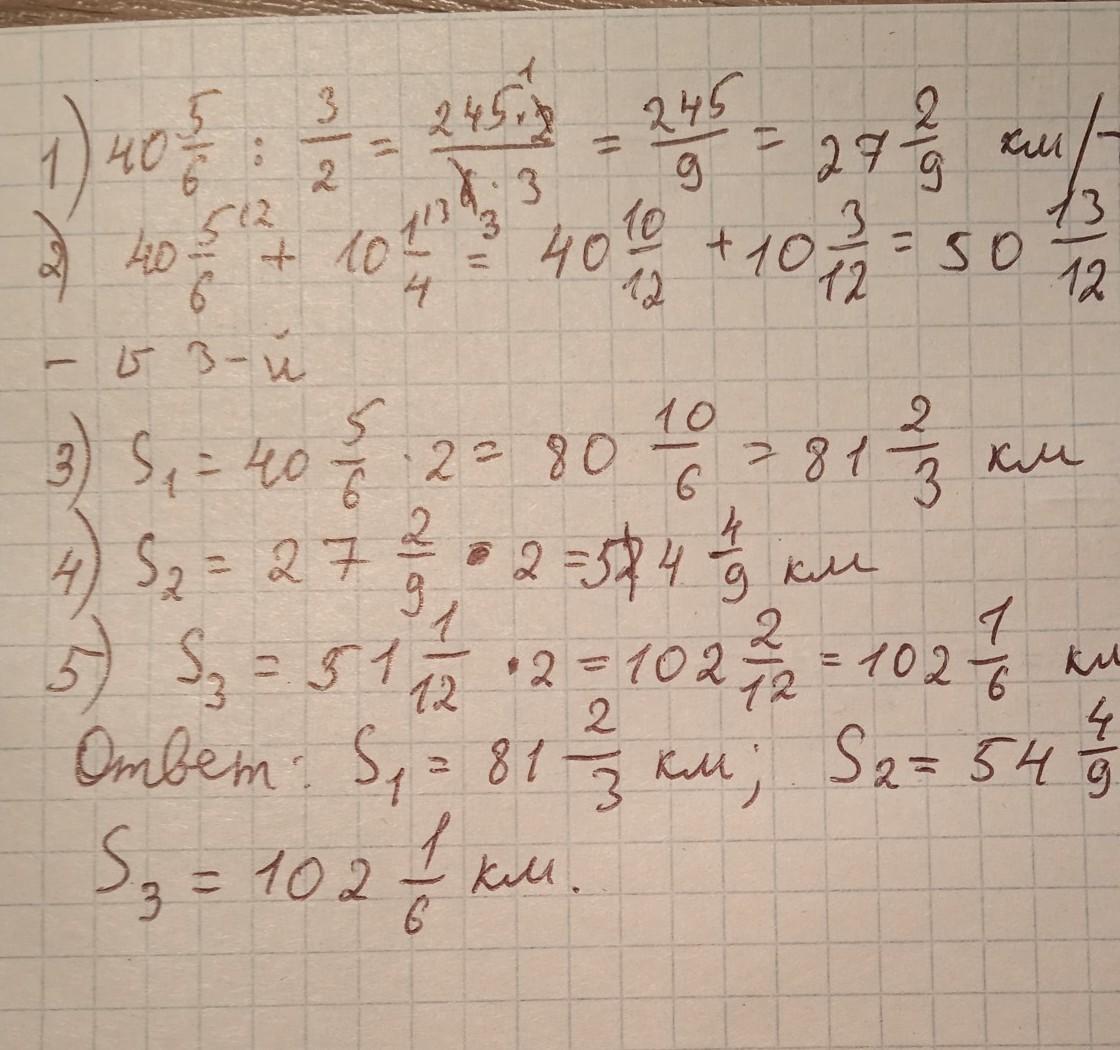 1) 40 5/6 : 3/2 = 245·2/6·3 = 245/9 = 27 2/9 км/
2) 40 5/6 + 10 1/4 = 40 10/12 + 10 3/12 = 50 13/12
- в 3-й
3) S₁ = 40 5/6 · 2 = 80 10/6 = 81 2/3 км
4) S₂ = 27 2/9 · 2 = 54 4/9 км
5) S₃ = 51 1/12 · 2 = 102 2/12 = 102 1/6 км
Ответ: S₁ = 81 2/3 км; S₂ = 54 4/9
S₃ = 102 1/6 км.